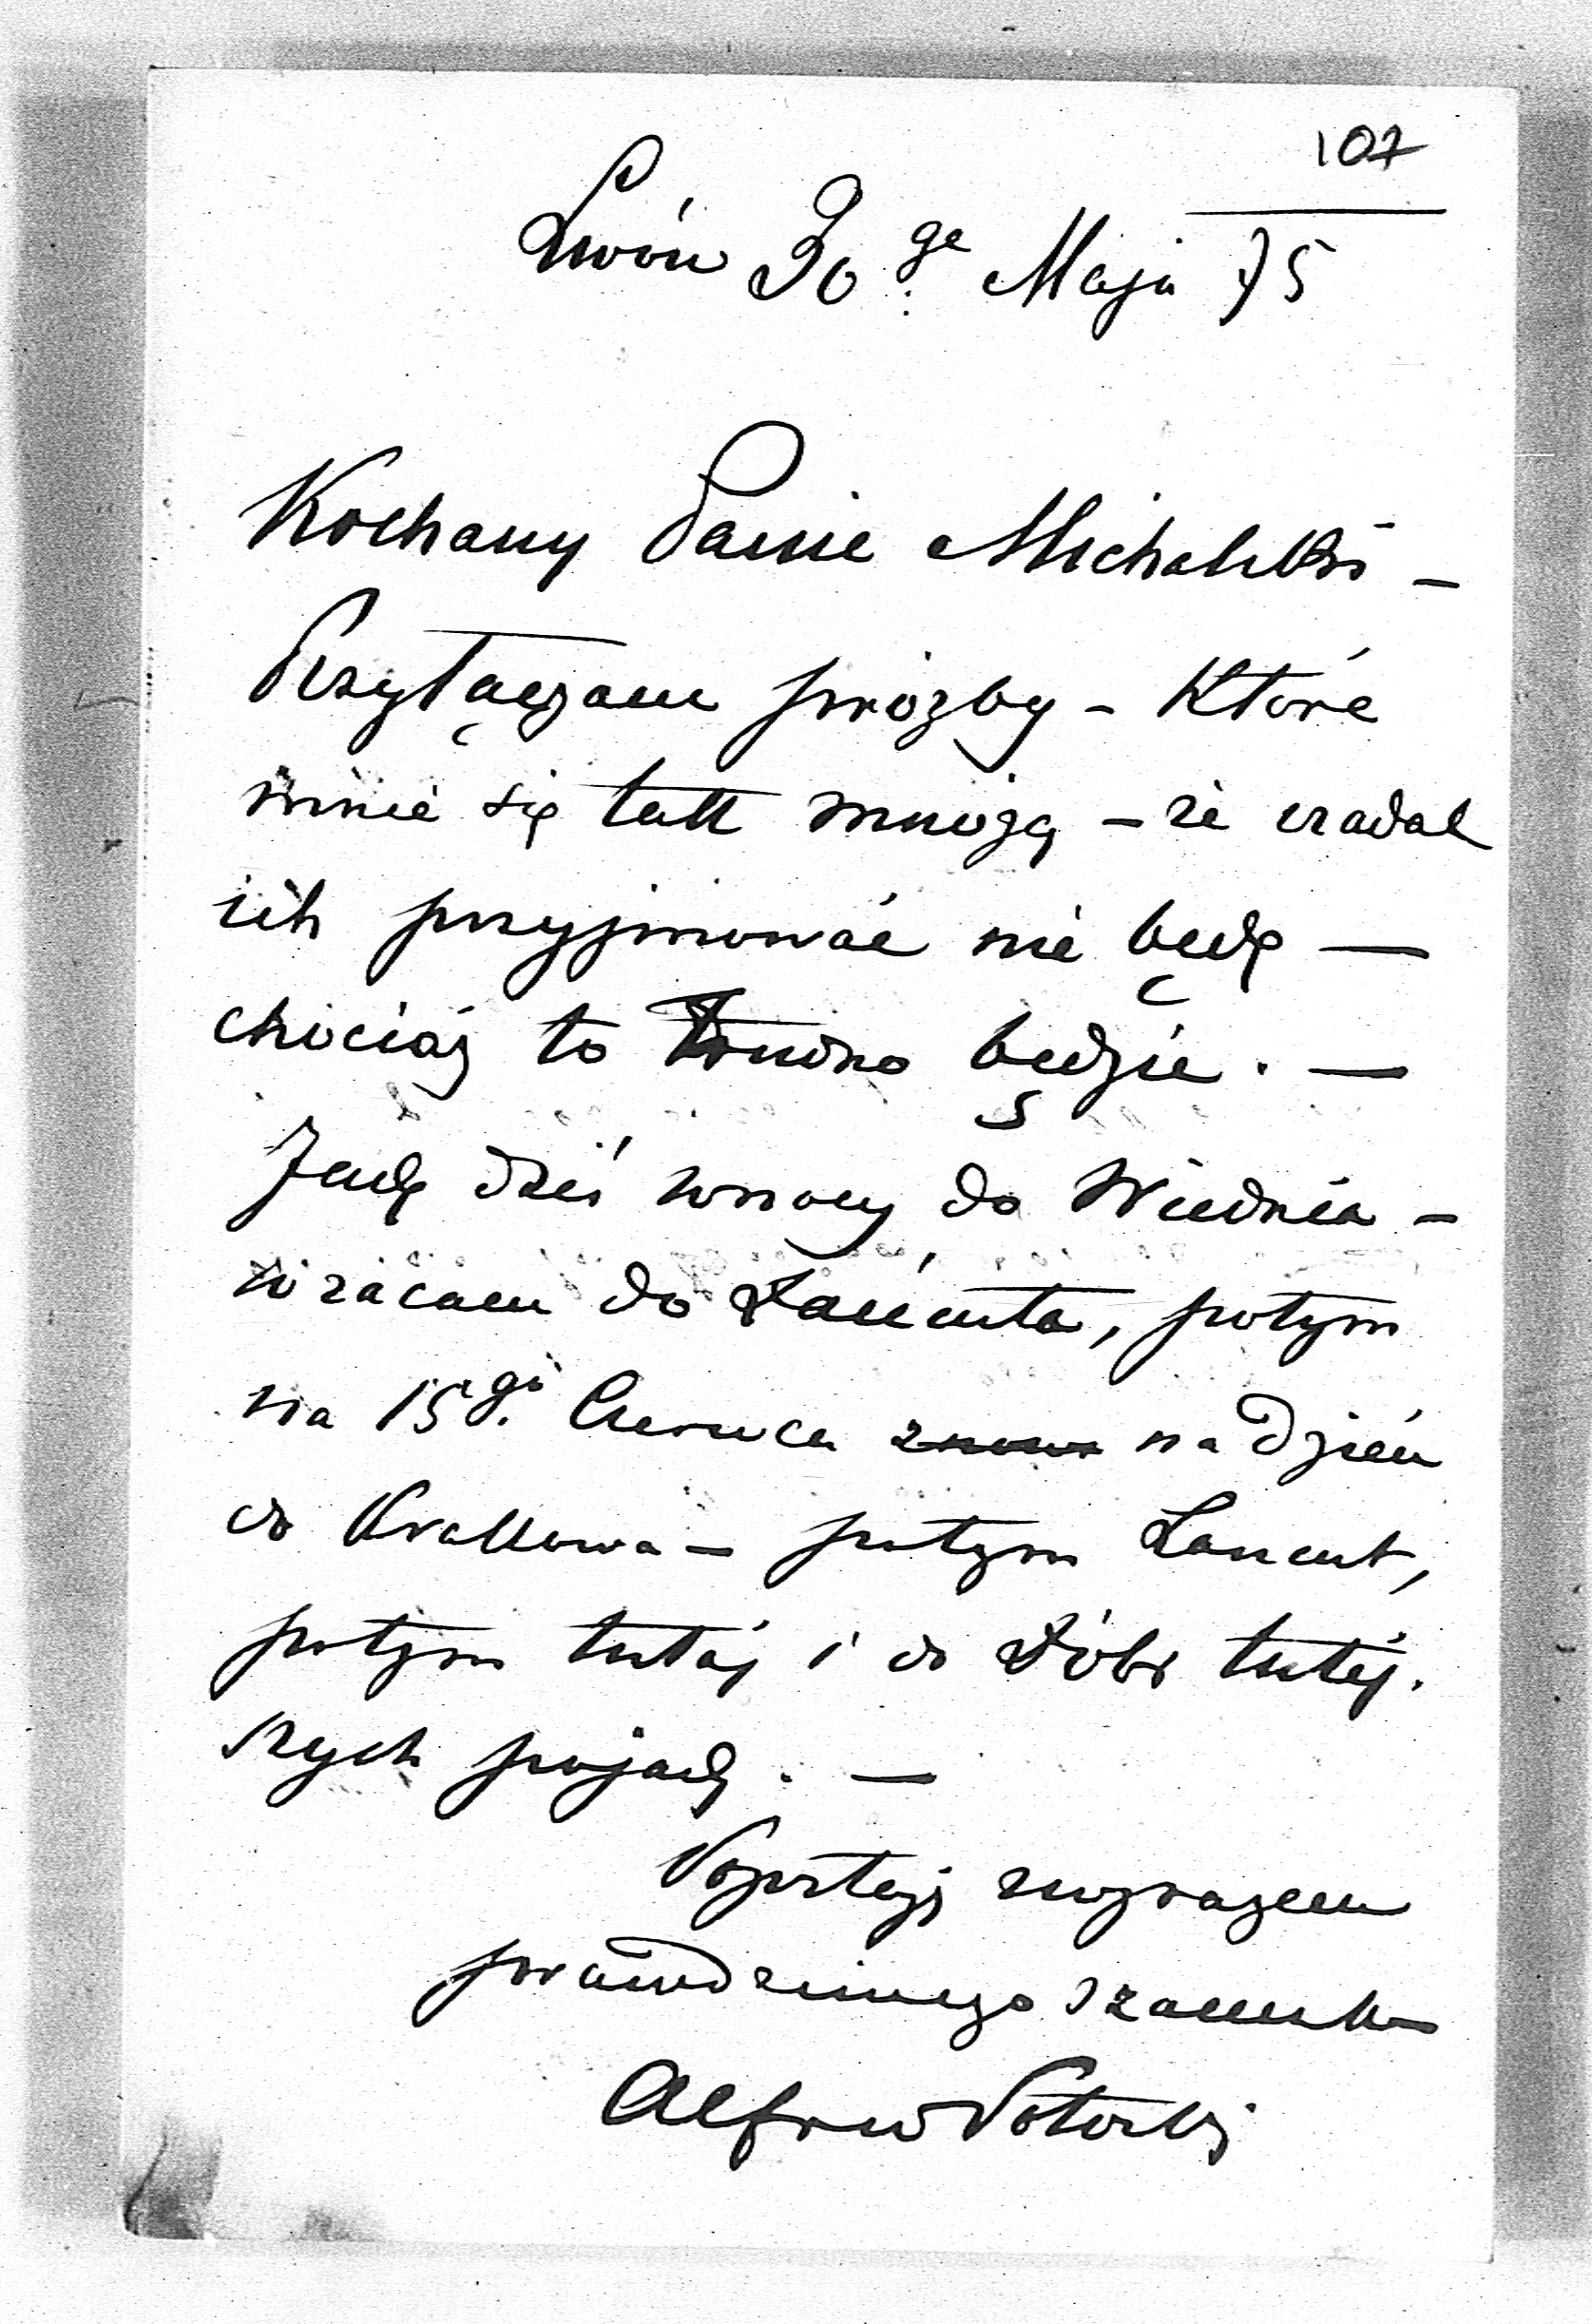 107
Lwów 30.ge Maja 75
Kochany Panie Michalski –
Przyłączam proźby – które
mnie się tak mnożą – że nadal
ich przyjmować nie będę —
chociaż to trudno będzie. —
Jadę dziś w nocy do Wiednia –
wracam do Łańcuta, potym
na 15.go Czerwca znowu na dzień
do Krakowa – potym Łancut,
potym tutaj i do dóbr tutéj.
szych pojadę. —
Pozostaję z wyrazem
prawdziwego szacunku
Alfred Potocki